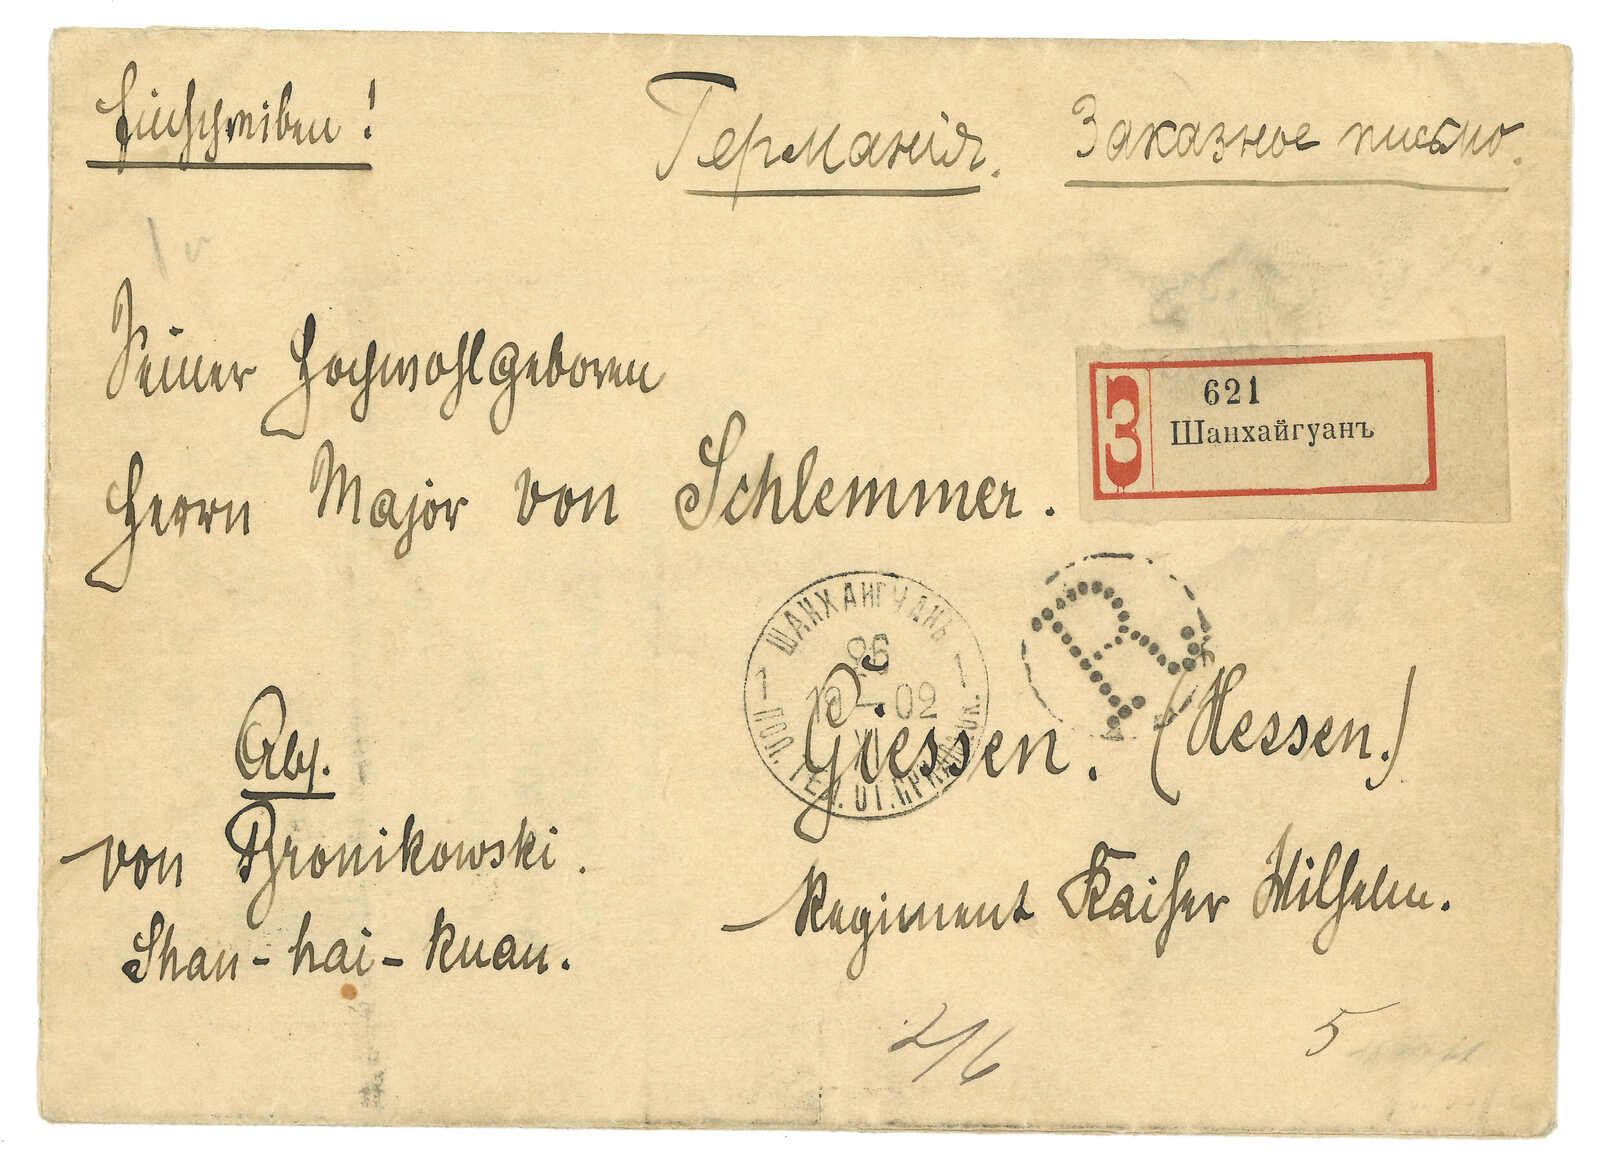 Einschreiben!
Германія. Заказное письмо.
Seiner Hochwohlgeboren
Herrn Major von Schlemmer.
З
621
Шанхайгуанъ
ШАНХАЙГУАНЬ
02
1 1
R
Giessen. (Hessen.)
Regiment Kaiser Wilhelm.
Abs.
von Bronikowski.
Shan-hai-kuan.
2/6
5